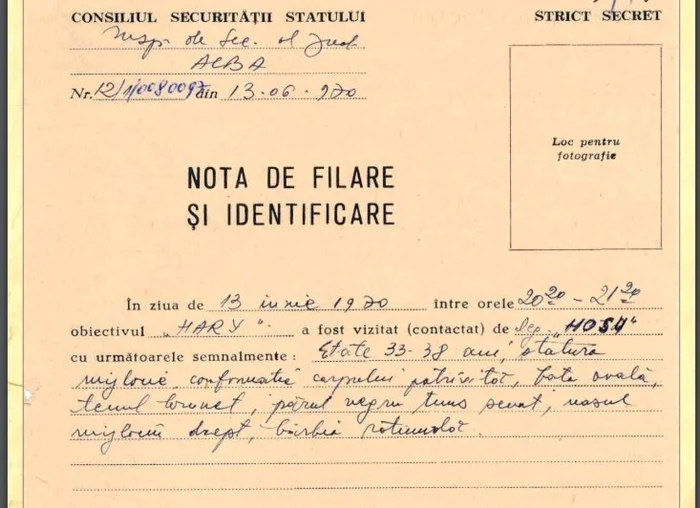 CONSILIUL SECURITĂȚII STATULUI
STRICT SECRET
Insp. de Sec. al Jud.
ALBA
Nr. 12/1/0080097 din 13-06-970
Loc pentru
fotografie
NOTA DE FILARE
ȘI IDENTIFICARE
În ziua de 13 iunie 1970 între orele 20²⁰ – 21²⁰
obiectivul „HARY" a fost vizitat (contactat) de leg. „HOSU"
cu următoarele semnalmente: Etate 33-38 ani, statura
mijlocie, conformația corpului potrivită, fața ovală,
tenul brunet, părul negru tuns scurt, nasul
mijlociu drept, bărbia rotundă.